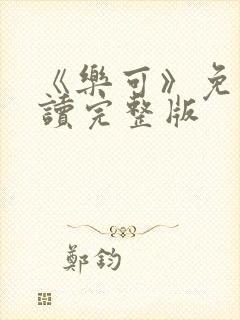 《樂可》免
讀完整版
鄭鈞